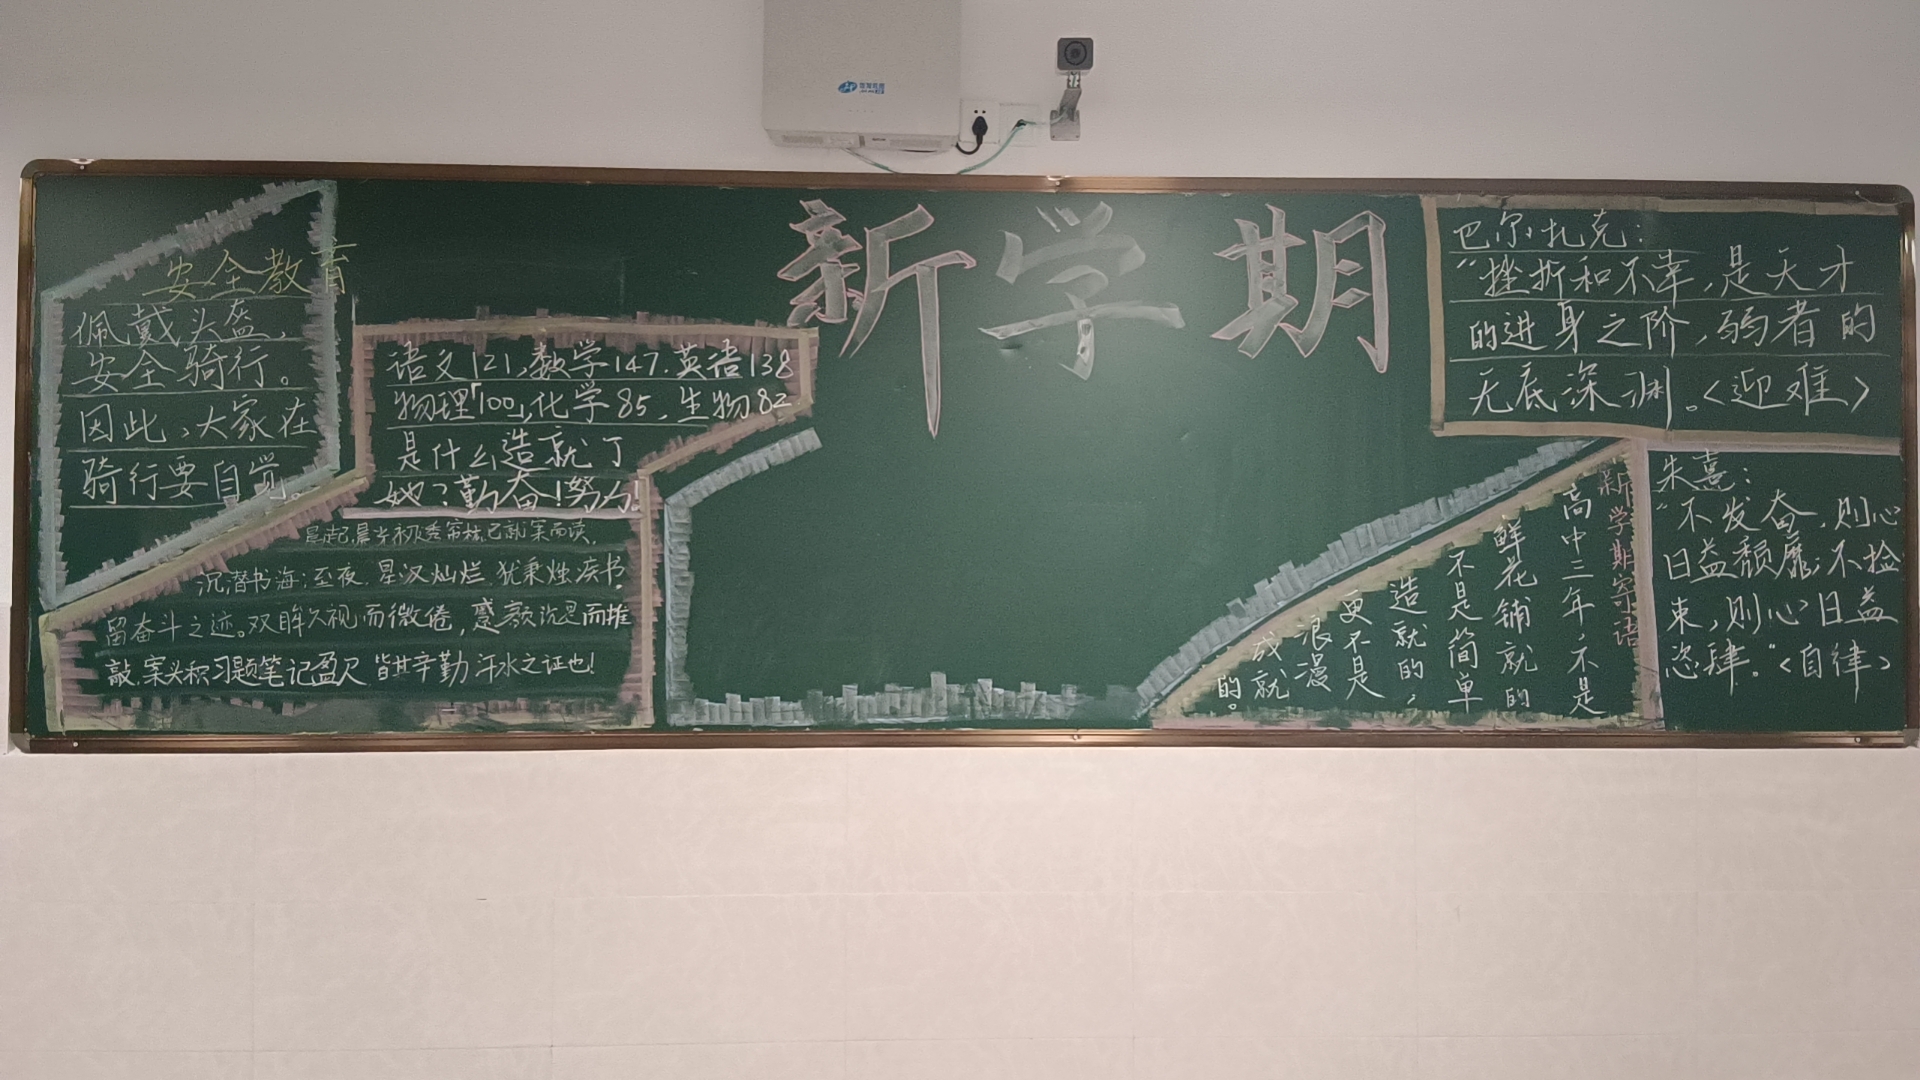 新学期
安全教育
佩戴头盔，
安全骑行。
因此，大家在
骑行要自觉。
语文121，数学147.英语138
物理「100」，化学85，生物82.
是什么造就了
她？勤奋！努力！
晨起，晨光初透帘栊，已就案而读，
沉潜书海；至夜，星汉灿烂，犹秉烛疾书，
留奋斗之迹。双眸久视而微倦，蹙额沉思而推
敲，案头积习题笔记盈尺 皆其辛勤汗水之证也！
巴尔扎克：
“挫折和不幸，是天才
的进身之阶，弱者的
无底深渊。<迎难>
新学期寄语
高中三年不是
鲜花铺就的
不是简单
造就的，
更不是
浪漫
成就
的。
朱熹：
“不发奋，则心
日益颓靡；不捡
束，则心日益
恣肆。”<自律>